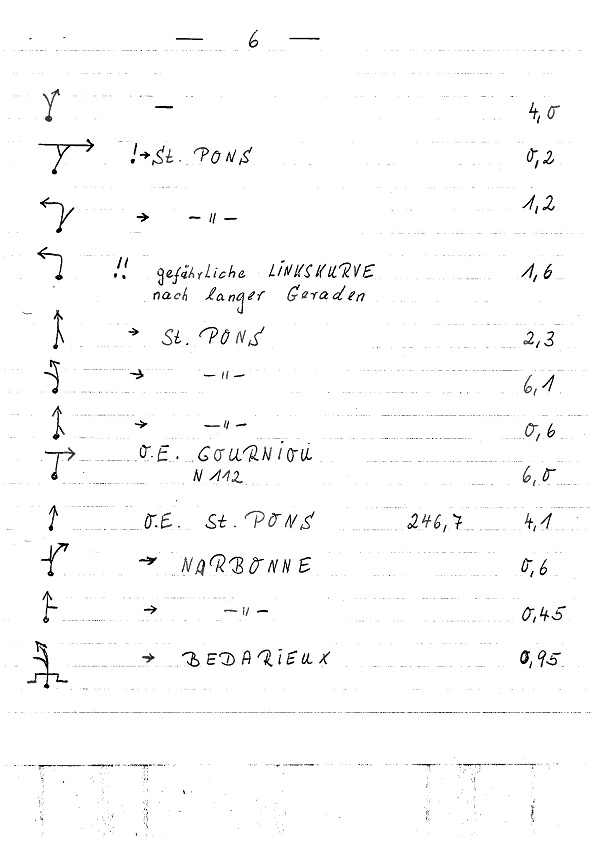 — 6 —
— 4,0
!→ St. PONS 0,2
→ —"— 1,2
!! gefährliche LINKSKURVE 1,6
nach langer Geraden
→ St. PONS 2,3
→ —"— 6,1
→ —"— 0,6
O.E. GOURNIOU
N 112 6,0
O.E. St. PONS 246,7 4,1
→ NARBONNE 0,6
→ —"— 0,45
→ BEDARIEUX 0,95